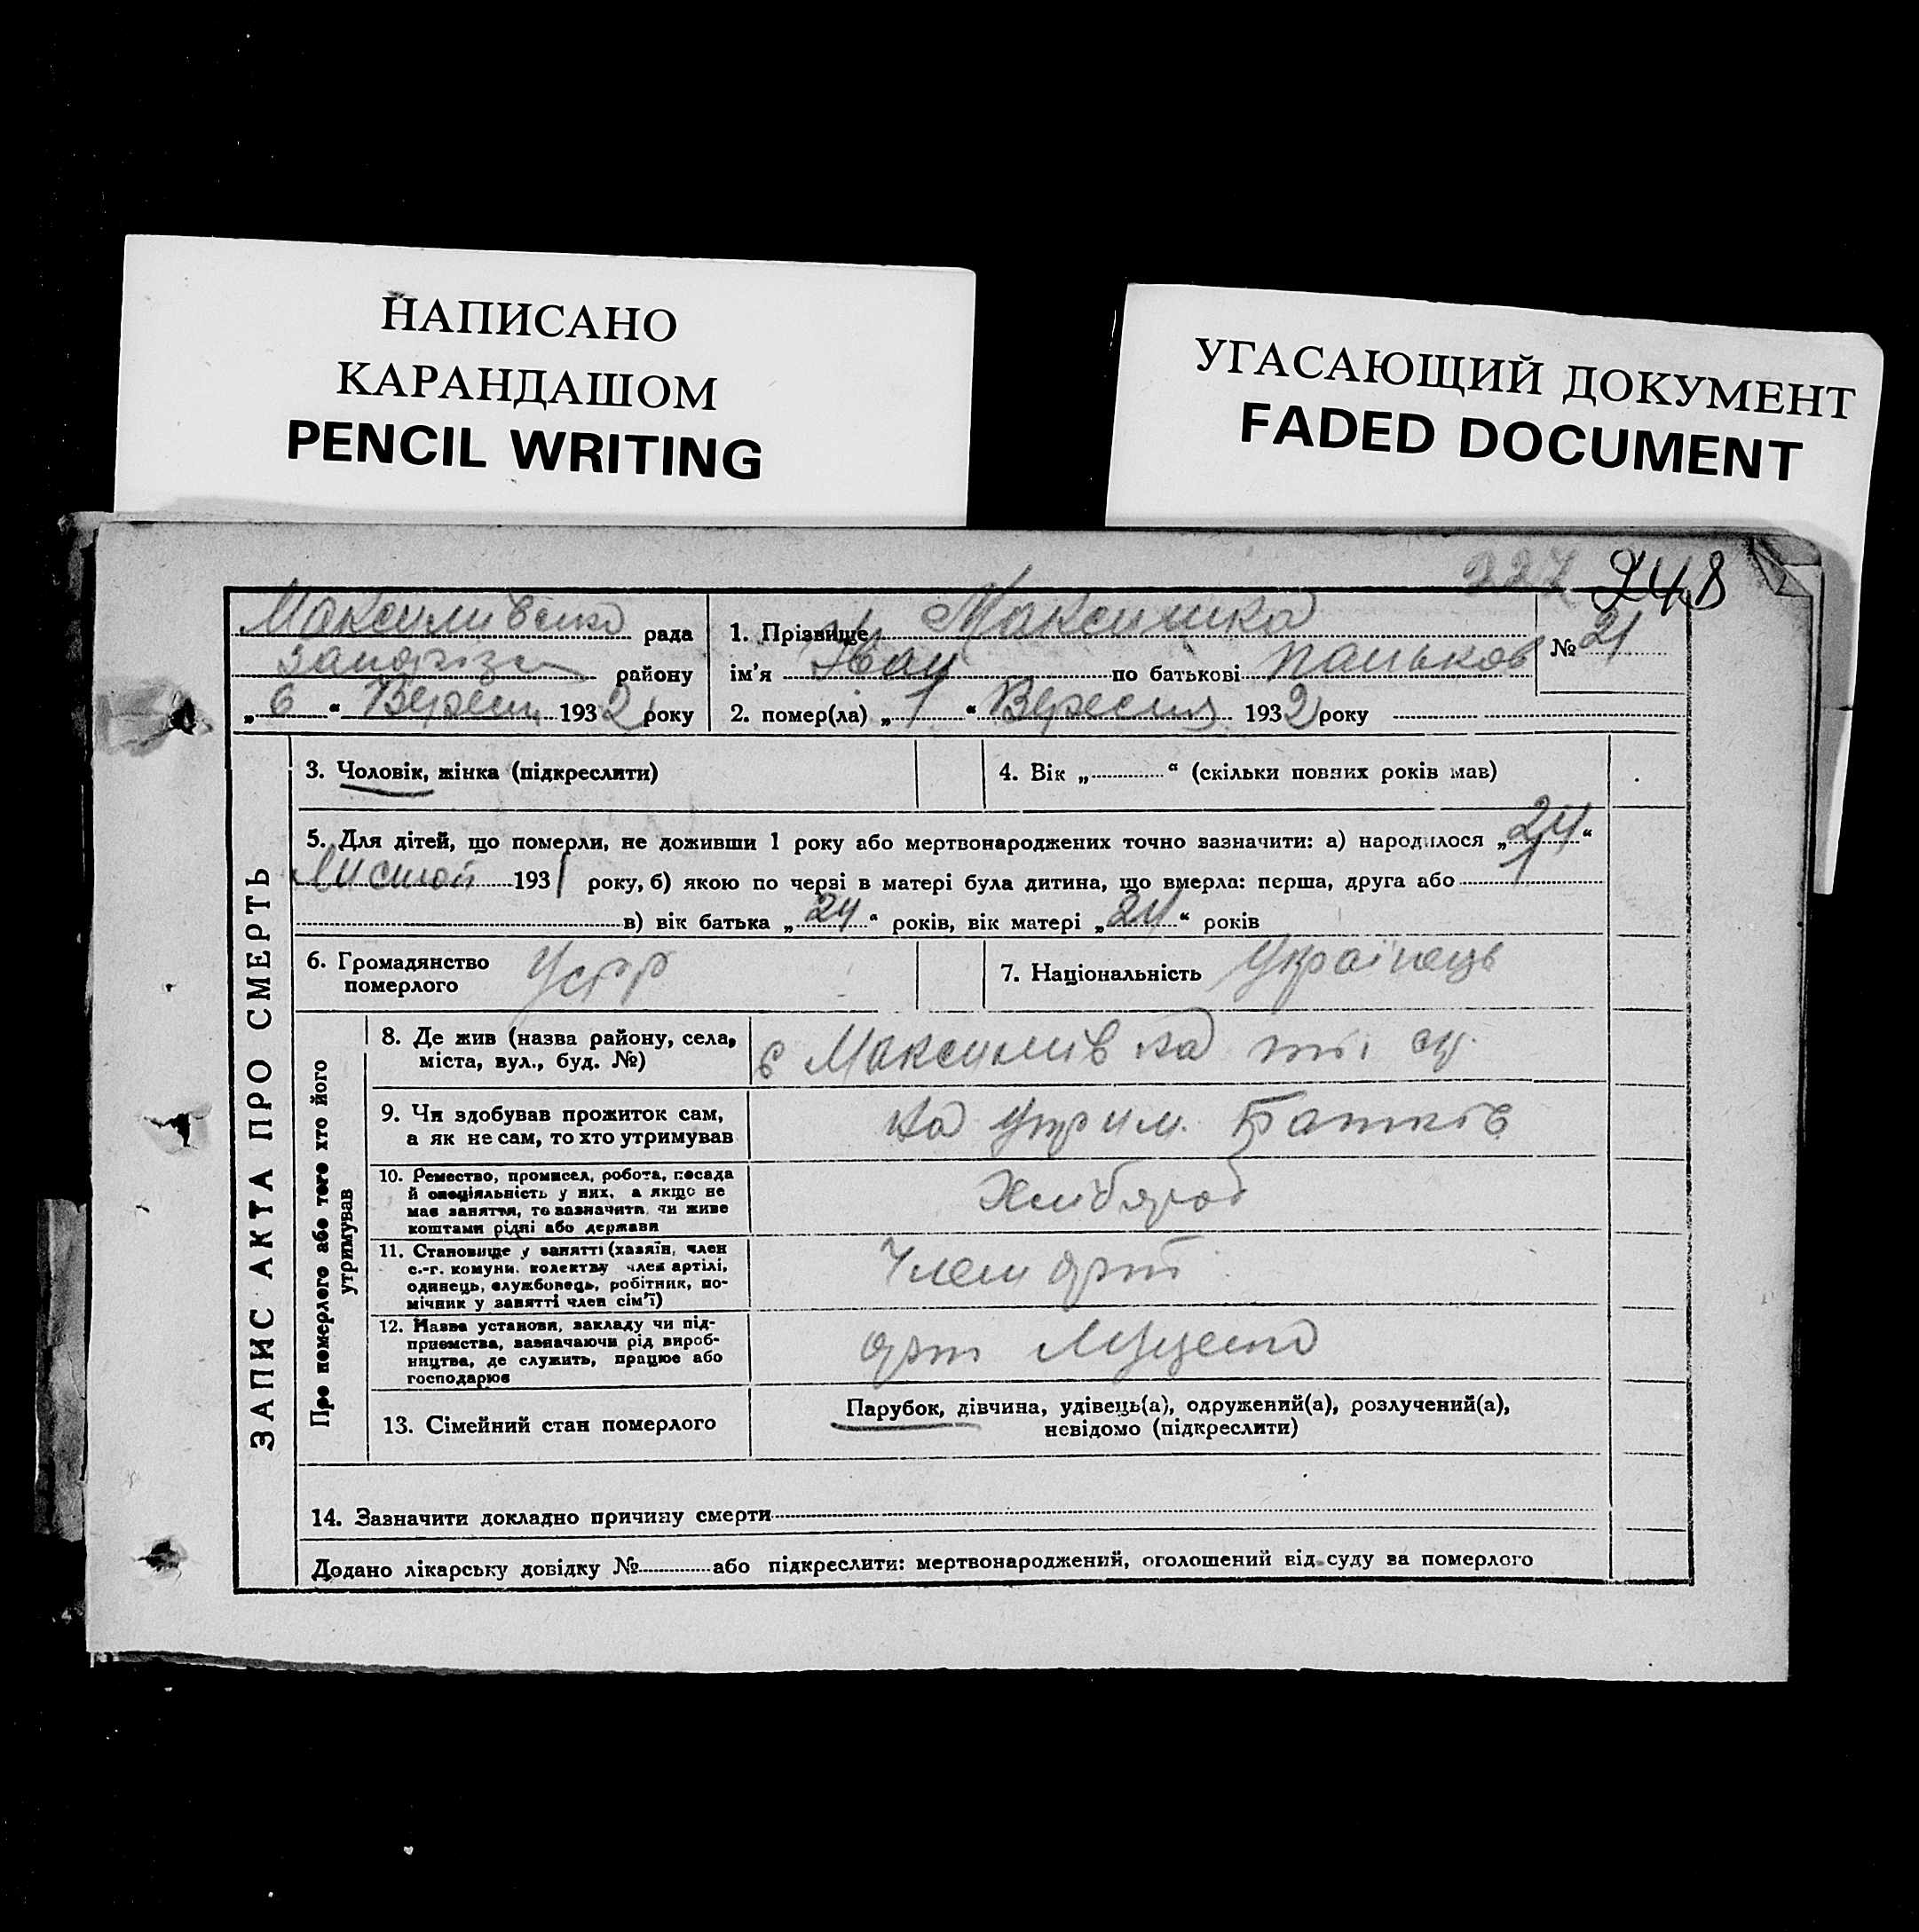 НАПИСАНО
КАРАНДАШОМ
PENCIL WRITING
УГАСАЮЩИЙ ДОКУМЕНТ
FADED DOCUMENT
227 248
рада
району
„ 6 “ 1932 року
1. Прізвище Максимка
ім'я Іван по батькові Паньков
2. помер(ла) „ 1 “ Вересня 1932 року
№ 21
ЗАПИС АКТА ПРО СМЕРТЬ
3. Чоловік, жінка (підкреслити)
4. Вік „ “ (скільки повних років мав)
5. Для дітей, що померли, не доживши 1 року або мертвонароджених точно зазначити: а) народилося „ 24 “
Листоп 1931 року, б) якою по черзі в матері була дитина, що вмерла: перша, друга або 1
в) вік батька „ 24 “ років, вік матері „ 24 “ років
6. Громадянство
померлого
УСРР
7. Національність Українець
Про померлого або того хто його
утримував
8. Де жив (назва району, села,
міста, вул., буд. №)
с Максимівка
9. Чи здобував прожиток сам,
а як не сам, то хто утримував
на утрим. Батьків
10. Ремество, промисел, робота, посада
й спеціяльність у них, а якщо не
має заняття, то зазначити, чи живе
коштами рідні або держави
Хлібороб
11. Становище у занятті (хазяїн, член
с.-г. комуни, колективу член артілі,
одинець, службовець, робітник, по-
мічник у занятті член сім'ї)
Член арт
12. Назва установи, закладу чи під-
приємства, зазначаючи рід вироб-
ництва, де служить, працює або
господарює
арт
13. Сімейний стан померлого
Парубок, дівчина, удівець(а), одружений(а), розлучений(а),
невідомо (підкреслити)
14. Зазначити докладно причину смерти
Додано лікарську довідку № або підкреслити: мертвонароджений, оголошений від суду за померлого